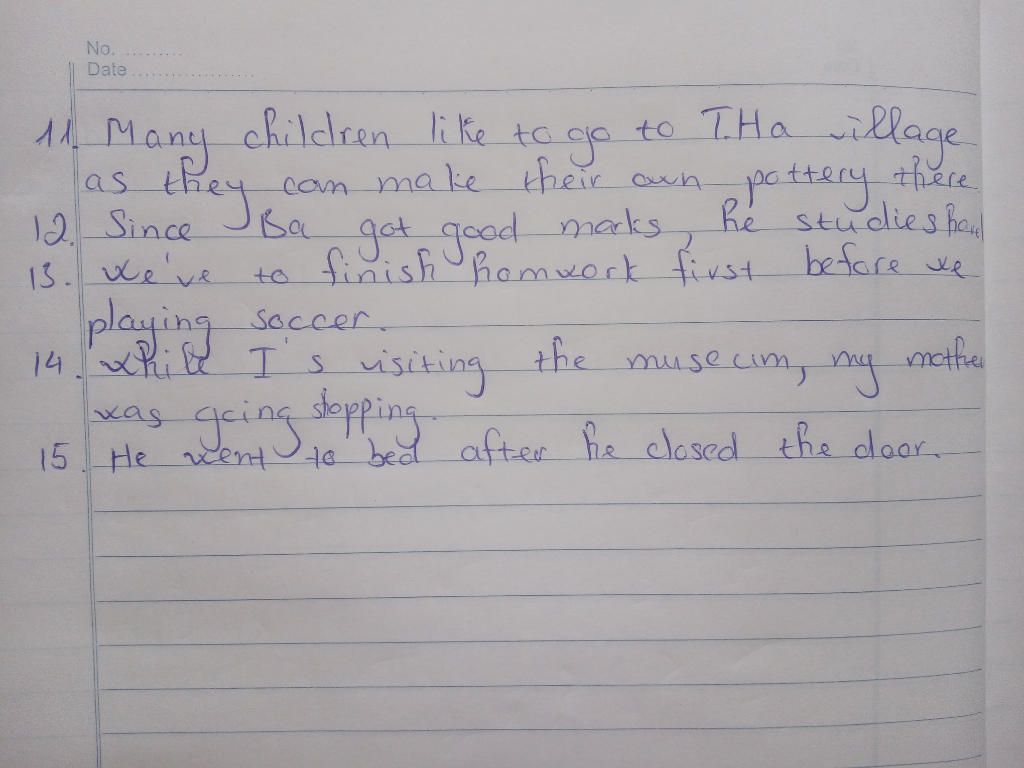 No. ..........
Date ...................
11. Many children like to go to T.Ha village
as they can make their own pottery there
12. Since Ba got good marks, he studies hard
13. We've to finish homwork first before we
playing soccer.
14. While I's visiting the museum, my mother
was going shopping.
15. He went to bed after he closed the door.